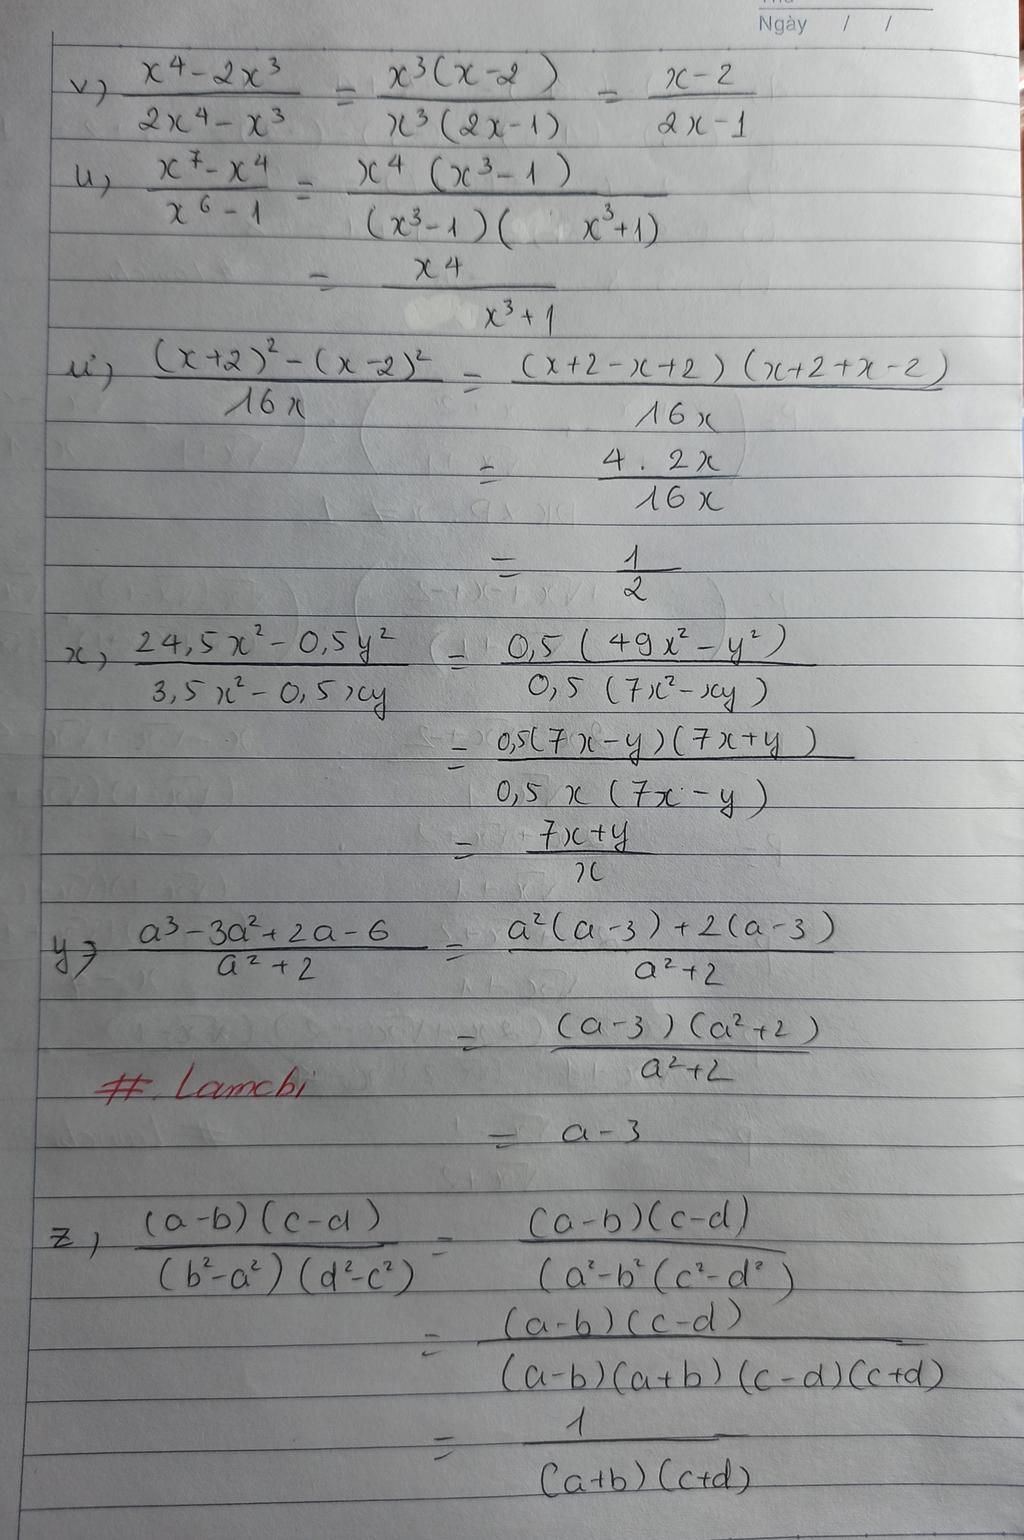 Ngày / /
v, (x⁴ - 2x³)/(2x⁴ - x³) = x³(x-2)/x³(2x-1) = (x-2)/(2x-1)
u, (x⁷ - x⁴)/(x⁶ - 1) = x⁴(x³-1)/(x³-1)(x³+1)
= x⁴/(x³+1)
ư, ((x+2)² - (x-2)²)/16x = (x+2-x+2)(x+2+x-2)/16x
= 4.2x/16x
= 1/2
x, (24,5x² - 0,5y²)/(3,5x² - 0,5xy) = 0,5(49x² - y²)/0,5(7x² - xy)
= 0,5(7x-y)(7x+y)/0,5x(7x-y)
= (7x+y)/x
y, (a³ - 3a² + 2a - 6)/(a² + 2) = (a²(a-3) + 2(a-3))/(a²+2)
= (a-3)(a²+2)/(a²+2)
#. Lamchi
= a-3
z, (a-b)(c-d)/(b²-a²)(d²-c²) = (a-b)(c-d)/(a²-b²(c²-d²)
= (a-b)(c-d)/(a-b)(a+b)(c-d)(c+d)
= 1/(a+b)(c+d)